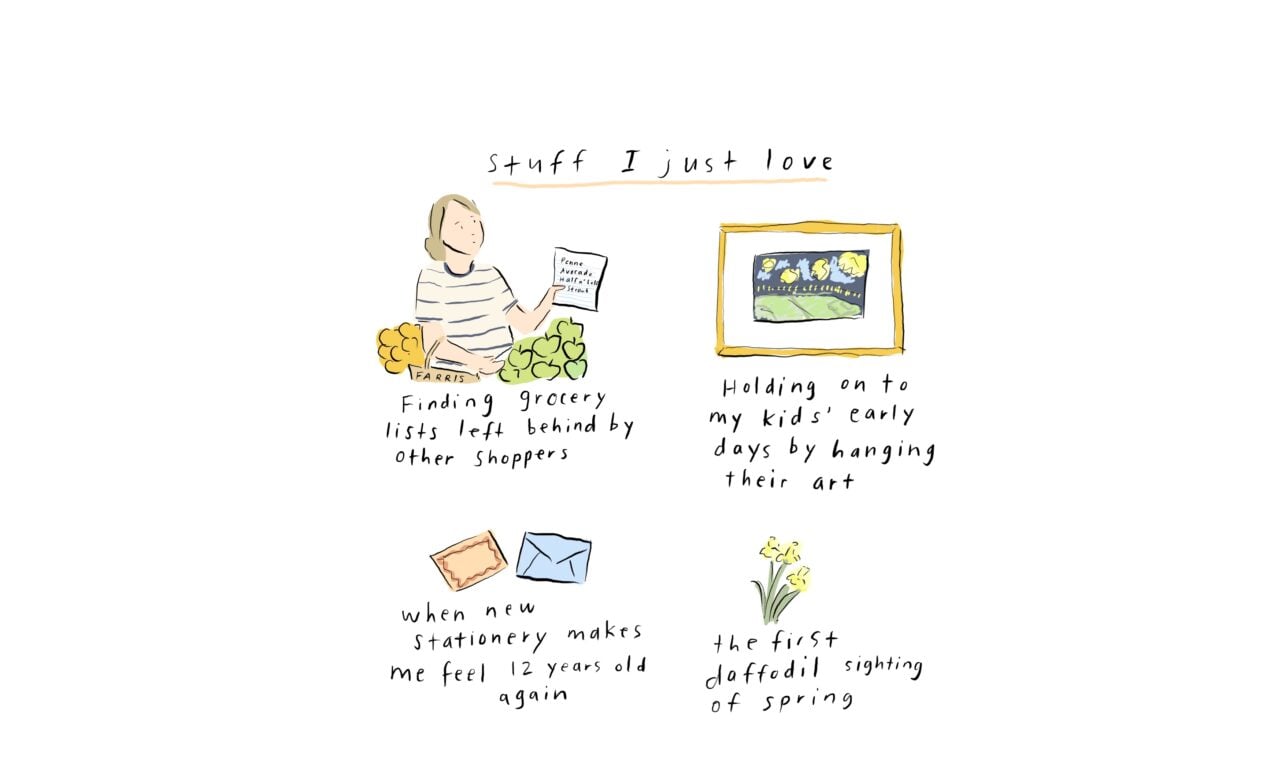 Stuff I just love
Penne
Avocado
Half n' half
FARRIS
Finding grocery
lists left behind by
other shoppers
Holding on to
my kids' early
days by hanging
their art
when new
stationery makes
me feel 12 years old
again
the first
daffodil sighting
of spring